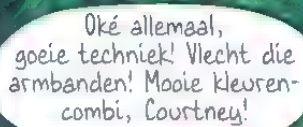 Oké allemaal,
goeie techniek! Vlecht die
armbanden! Mooie kleuren-
combi, Courtney!